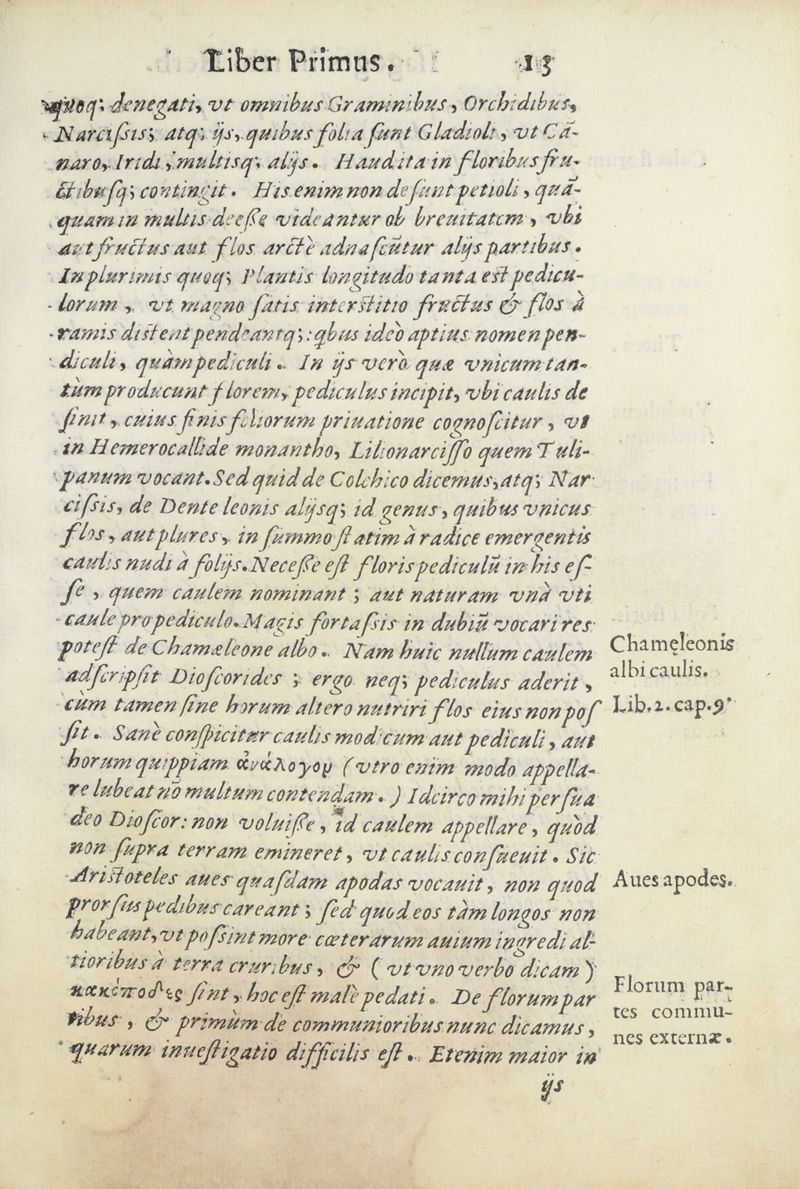 Liber Primus. 13
quoq; denegati, vt omnibus Graminibus, Orchidibus,
Narcißis; atq; ijs, quibus folia sunt Gladioli, vt Cã-
naro, Iridi, multisq; alijs. Haud ita in floribus fru-
ctibusq; contingit. His enim non desunt petioli, quã-
quam in multis deeße videantur ob breuitatem, vbi
aut fructus aut flos arctè adnascũtur alijs partibus.
In plurimis quoq; Plantis longitudo tanta est pedicu-
lorum, vt magno satis interstitio fructus & flos à
ramis distent pendeantq;: qbus ideò aptius nomen pen-
diculi, quàm pediculi. In ijs verò quæ vnicum tan-
tùm producunt florem, pediculus incipit, vbi caulis de
sinit, cuius finis foliorum priuatione cognoscitur, vt
in Hemerocallide monantho, Lilionarcisso quem Tuli-
panum vocant. Sed quid de Colchico dicemus, atq; Nar
cißis, de Dente leonis alijsq; id genus, quibus vnicus
flos, aut plures, in summo statim à radice emergentis
caulis nudi à folijs. Neceße est floris pediculũ in his es-
se, quem caulem nominant; aut naturam vnà vti
caule pro pediculo. Magis fortaßis in dubiũ vocari res
potest de Chamæleone albo. Nam huic nullum caulem
adscripsit Dioscorides; ergo neq; pediculus aderit,
cùm tamen sine horum altero nutriri flos eius non pos
sit. Sanè conspicitur caulis modicum aut pediculi, aut
horum quippiam ἀνάλογον (vtro enim modo appella-
re lubeat nõ multum contendam.) Idcirco mihi persua
deo Dioscor: non voluiße, id caulem appellare, quòd
non supra terram emineret, vt caulis consueuit. Sic
Aristoteles aues quasdam apodas vocauit, non quod
prorsus pedibus careant; sed quod eos tàm longos non
habeant, vt poßint more cæterarum auium ingredi al-
tioribus à terra cruribus, & (vt vno verbo dicam)
κακόποδες sint, hoc est malè pedati. De florum par
tibus, & primùm de communioribus nunc dicamus,
quarum inuestigatio difficilis est. Etenim maior in
ijs
Chamęleonis
albi caulis.
Lib. 2. cap. 9
Aues apodes.
Florum par-
tes commu-
nes externæ.